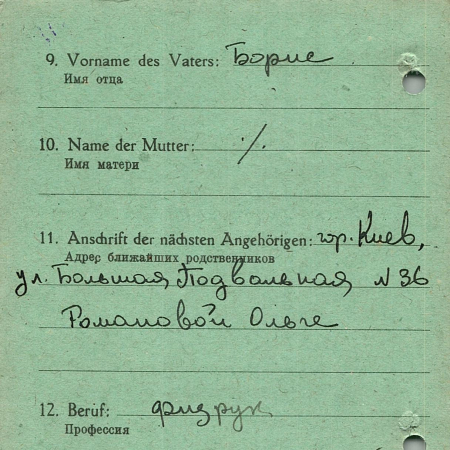 9. Vorname des Vaters: Борис
Имя отца
10. Name der Mutter: ⁒
Имя матери
11. Anschrift der nächsten Angehörigen: гор. Киев,
Адрес ближайших родственников
ул. Большая Подвольная N 36
Романовой Ольге
12. Beruf: физрук
Профессия